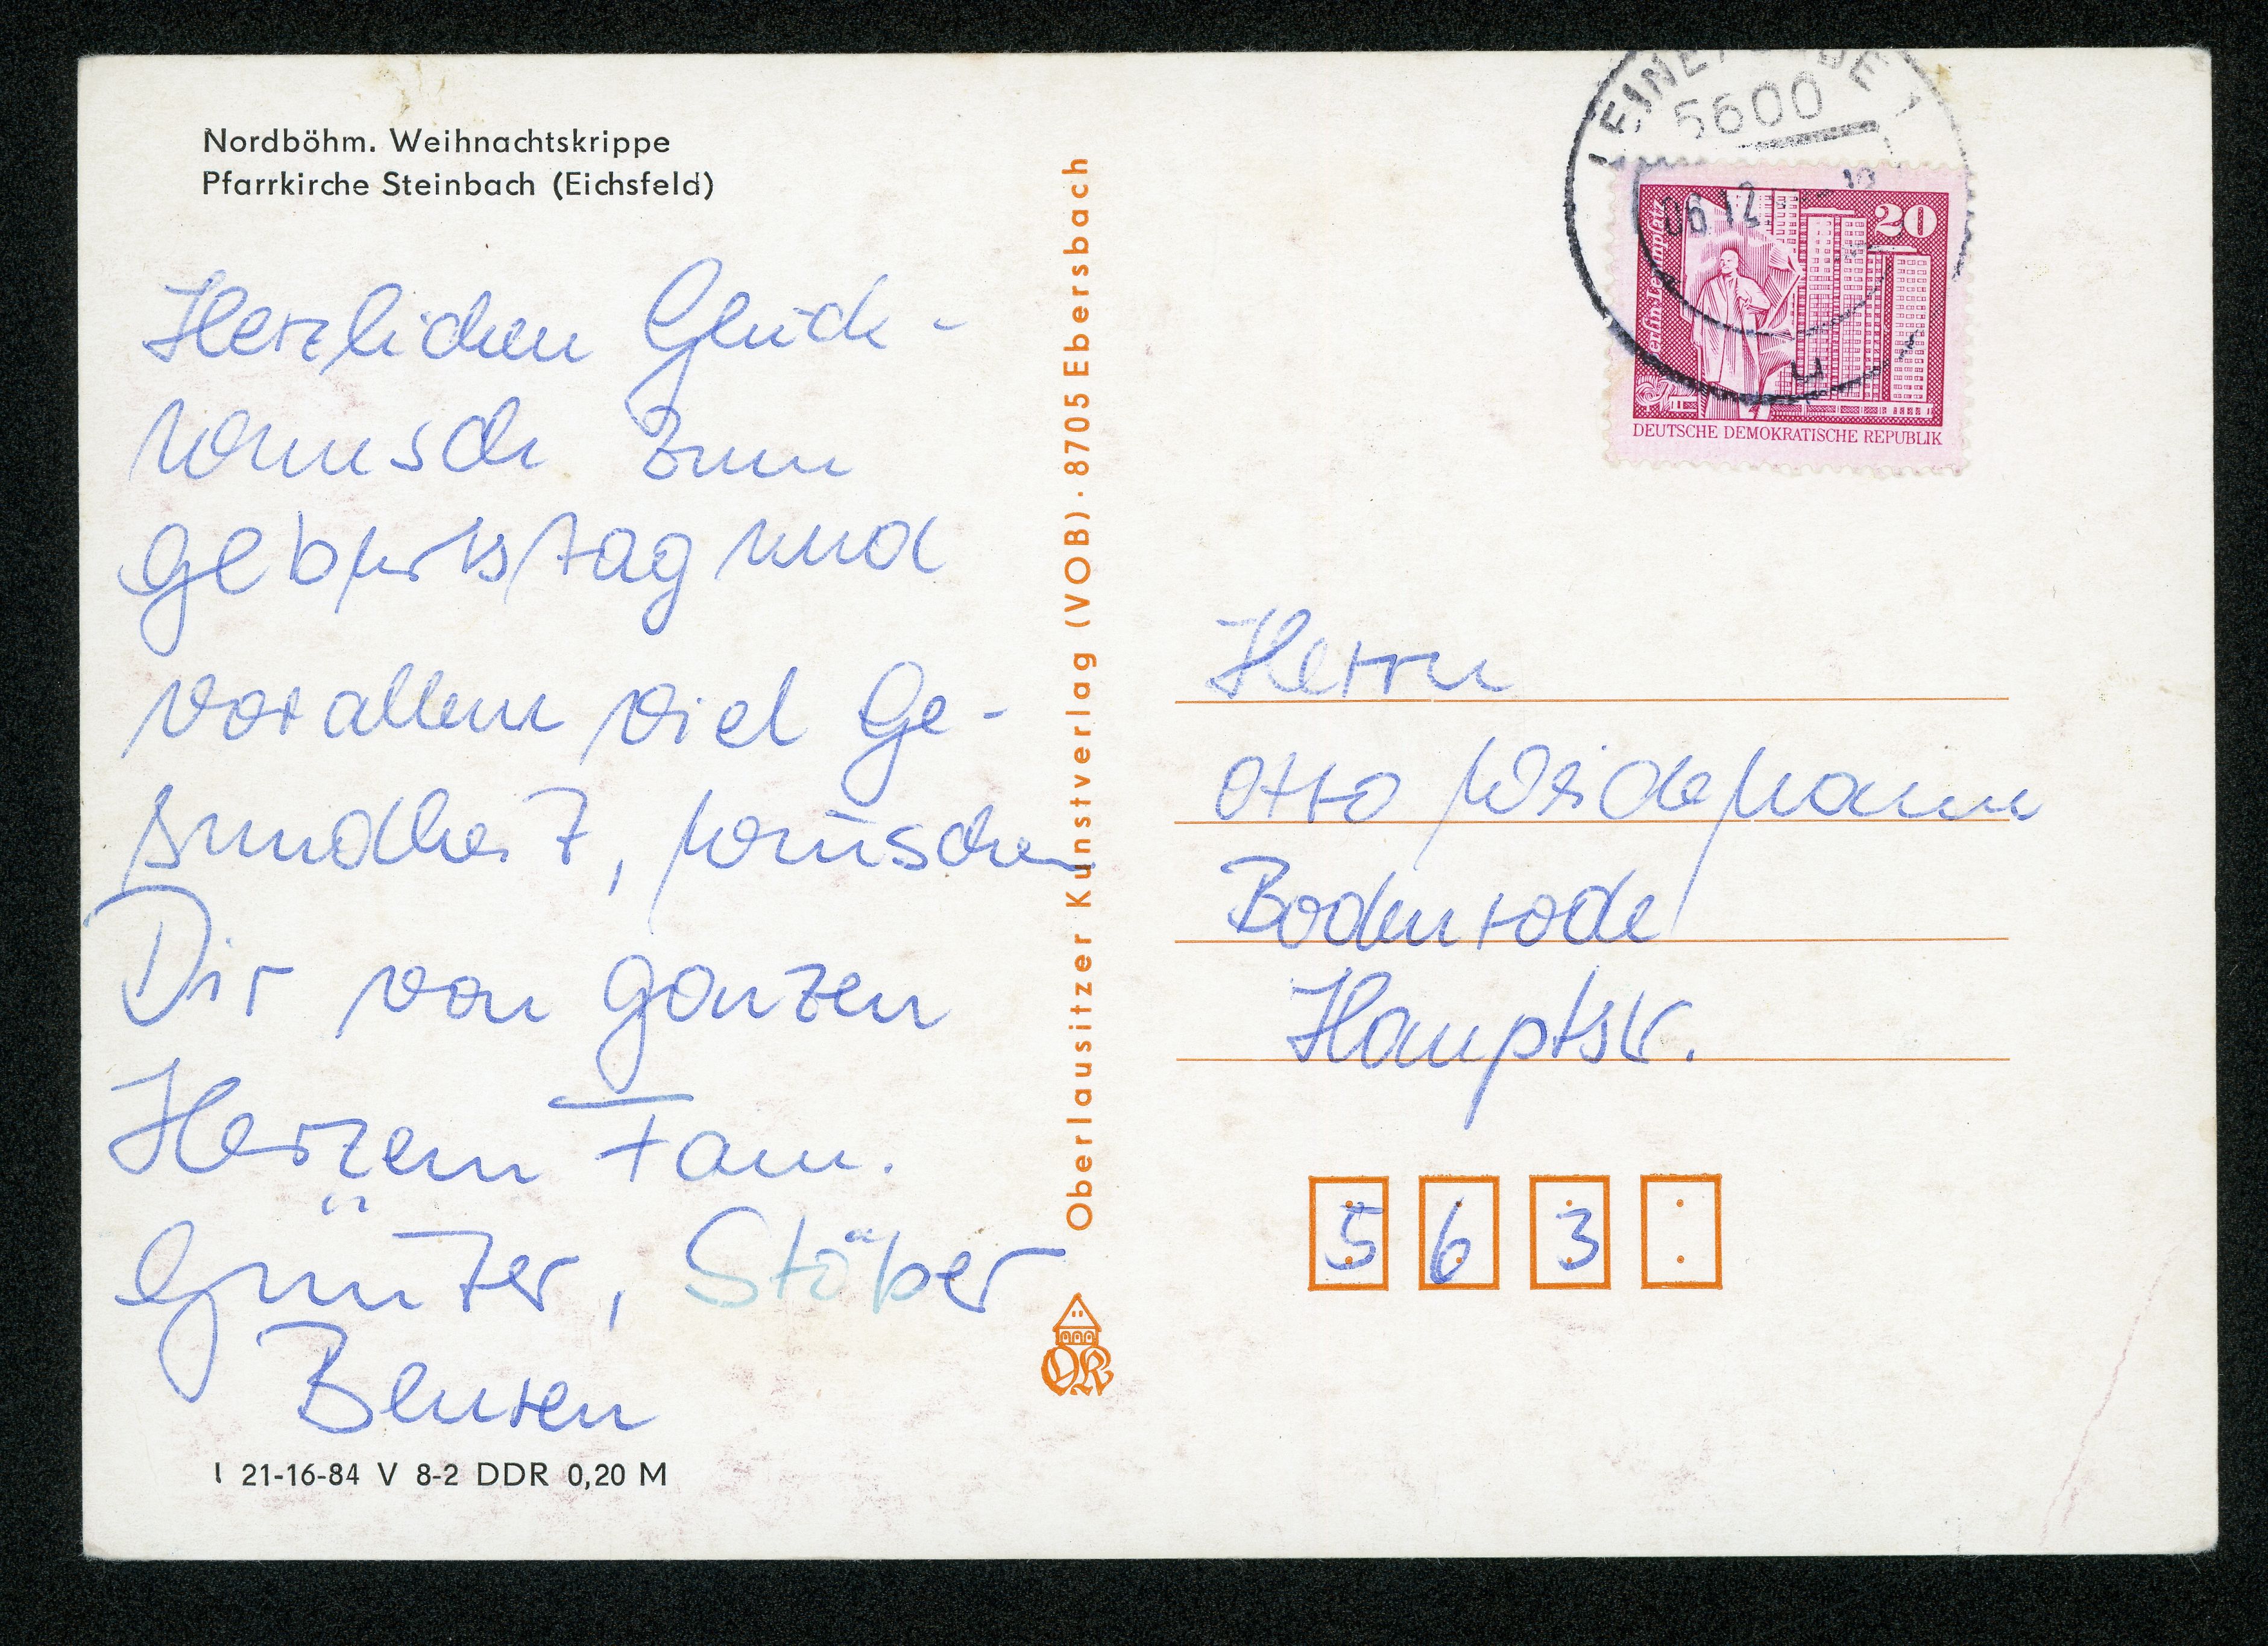 Nordböhm. Weihnachtskrippe
Pfarrkirche Steinbach (Eichsfeld)
Herzlichen Glück-
wunsch zum
Geburtstag und
vor allem viel Ge-
sundheit, wünschen
Dir von ganzen
Herzem Fam.
Günter, Stöber
Beuren
I 21-16-84 V 8-2 DDR 0,20 M
Oberlausitzer Kunstverlag (VOB) · 8705 Ebersbach
LEINEFELDE 1
5600
06.12.
20
Berlin-Leninplatz
DEUTSCHE DEMOKRATISCHE REPUBLIK
Herrn
Otto
Bodenrode
Hauptstr.
5 6 3